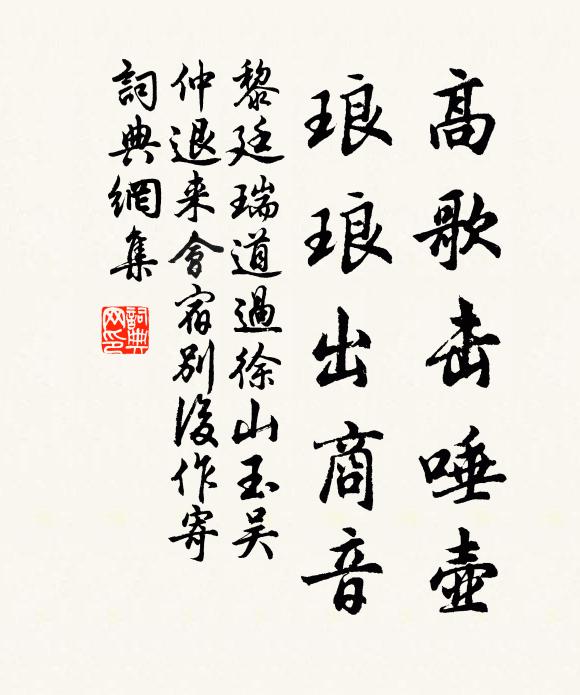 高歌击唾壶
琅琅出商音
黎廷瑞道過徐山玉吴
仲退来會宿別後作寄
詞典網集
詞典网印